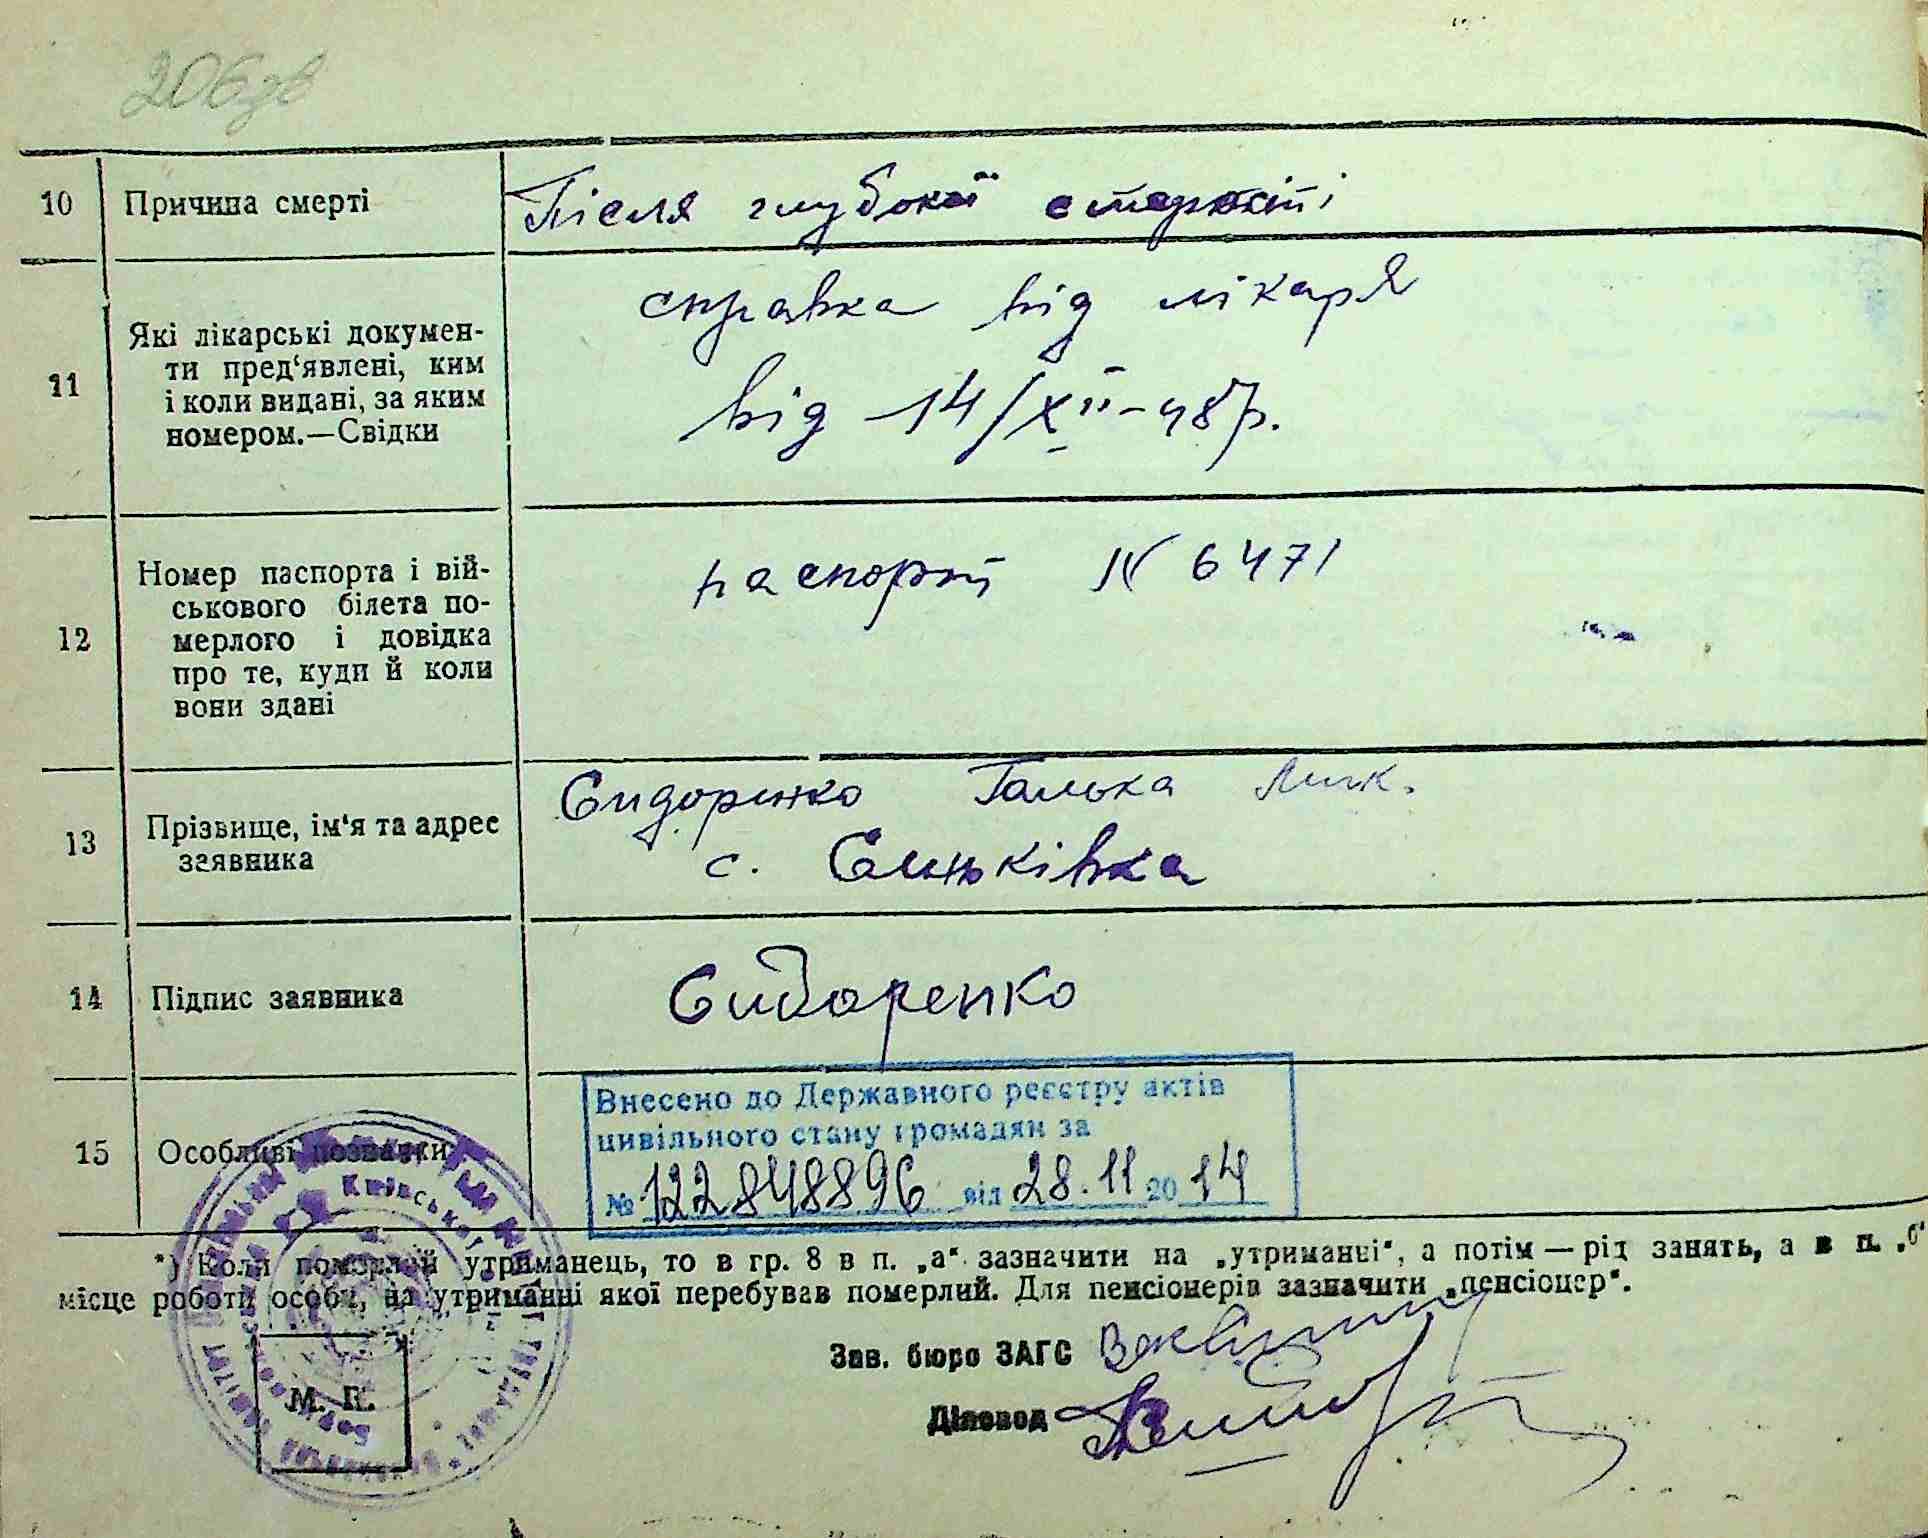 206зв
10 Причина смерті Після глубокої старості
11 Які лікарські докумен-
ти пред‘явлені, ким
і коли видані, за яким
номером.—Свідки
справка від лікаря
від 14/XII-48р.
12 Номер паспорта і вій-
ськового білета по-
мерлого і довідка
про те, куди й коли
вони здані
паспорт № 6471
13 Прізвище, ім‘я та адрес
заявника
Сидоренко Галька Мик.
с. Синьківка
14 Підпис заявника Сидоренко
15 Особливі познаки
Внесено до Державного реєстру актів
цивільного стану громадян за
№ 122848896 від 28.11 2014
*) Коли померлий утриманець, то в гр. 8 в п. „а“ зазначити на „утриманні“, а потім — рід занять, а в п. „б“
місце роботи особи, на утриманні якої перебував померлий. Для пенсіонерів зазначити „пенсіонер“.
Зав. бюро ЗАГС
Діловод
М. П.
Київської